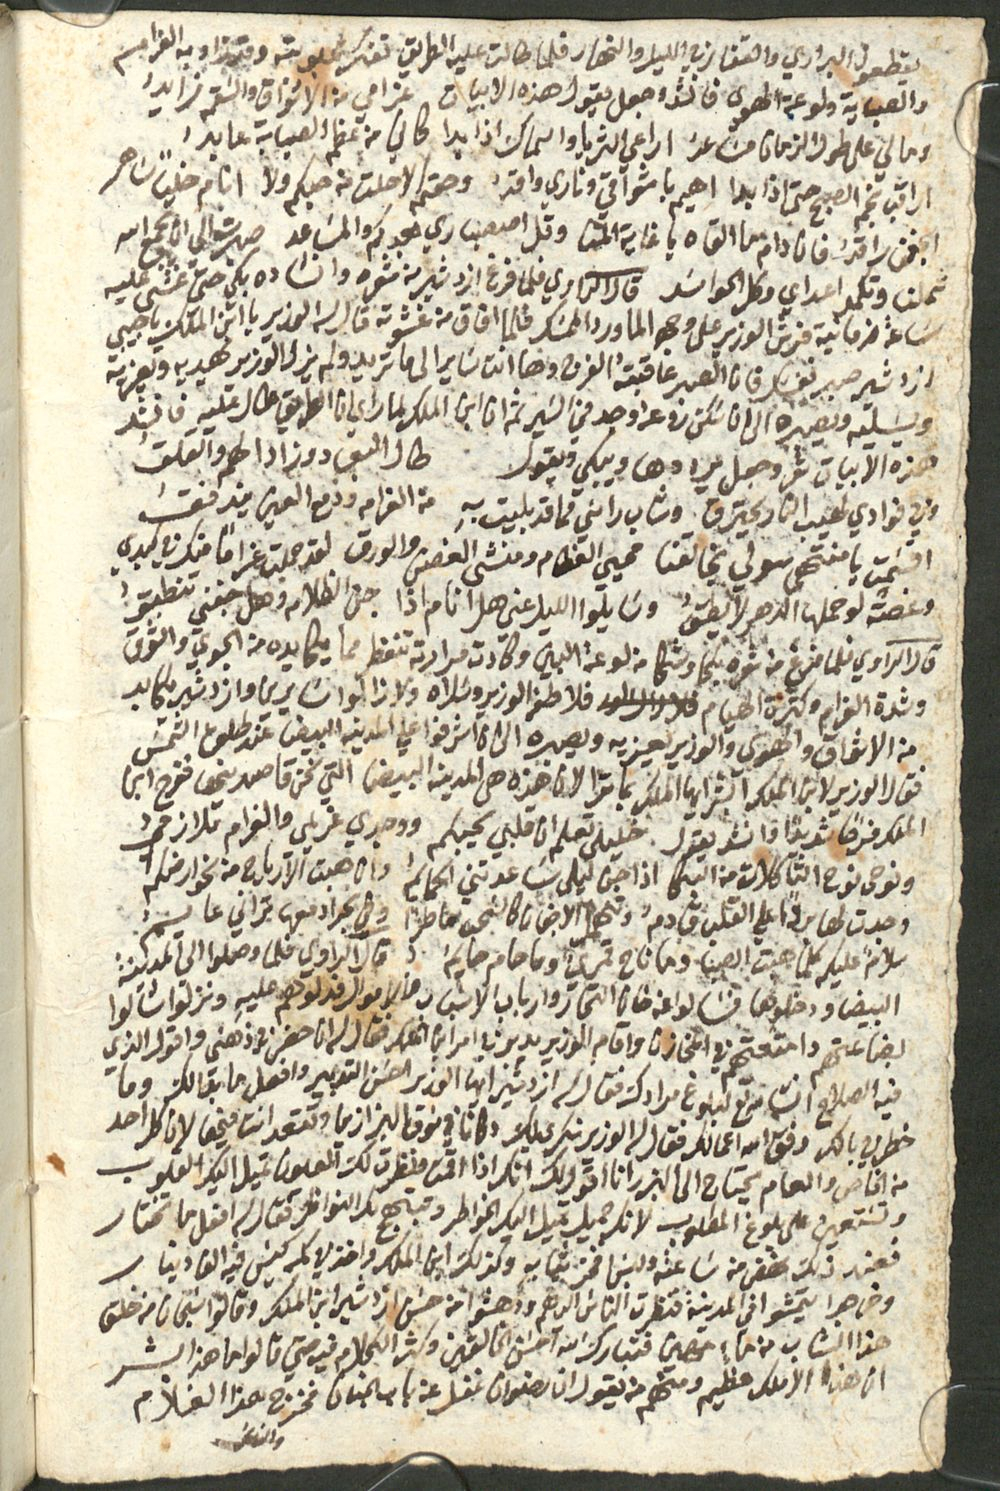 يقطعوا البراري والقفار في الليل والنهار فلما طالت عليه الطريق تفكر محبوبته وقد زاد به الغرام
والصبابة ولوعة الهوى فانشد وجعل يقول هذه الابيات غرامي من الاشواق والسقم زايد
ومالي على طول الزمان مساعد اراعي الثريا والسماك اذا بدا كاني من عظم الصبابة عابد
اراقب نجم الصبح حتى اذا بدا اهيم باشواقي وناري واقد وحقكم لاحلت عن حبكم ولا انام خلياً ساهر
الجفن راقد فان دام ما القاه يا غاية المنا وقل اصطباري بعدكم والمساعد صبرت الى ان يجمع الله
شملنا وتكمد اعداي وكل الحواسد قال الراوي فلما فرغ ازدشير من شعره وانشاده بكى حتى غشي عليه
ساعة زمانية فرش الوزير على وجهه الماورد الممسك فلما افاق من غشوته قال له الوزير يا ابن الملك يا حبيبي
ازدشير صبر نفسك فان الصبر عاقبته الفرج وها انت ساير الى ما تريد ولم يزل الوزير يهديه ويعزيه
ويسليه ويصبره الى ان سكن روعه وجد في السير ثم ان ابن الملك لما راى ان الطريق طال عليه فانشد
هذه الابيات شعر وجعل يرددها ويبكي ويقول طال البعاد وزاد الهم والقلق
وفي فوادي لهيب النار يحترق وشاب راسي مما قد بليت به من الغرام ودمع العين يندفق
اقسمت يا منتهى سولي بخالقنا محيي العظام ومنشي الغصن والورق لقد حملت غراماً منك في كبدي
وغصة لو حملها الدهر لا يطق وسايلوا الليل عني هل انام اذا جن الظلام وهل جفني ينطبق
قال الراوي فلما فرغ من شعره بكا وشكا من لوعة البين وكادت مرارته تنفطر مما يكابده من الجوى والشوق
وشدة الغرام وكثرة الهيام فلاطفه الوزير وسلاه ولا زالوا سايرين وازدشير يكابد
من الاشواق والهوى والوزير يعزيه ويصبره الى ان اشرفوا على المدينة البيضا عند طلوع الشمس
فقال الوزير لابن الملك ابشر ايها الملك بما ترا لان هذه هي المدينة البيضا التي نحن قاصدينها ففرح ابن
الملك فرحاً شديداً وانشد يقول خليلي تعلم ان قلبي يحبكم ووجدي غريمي والغرام تلازم
ونوحي نوح الثاكلات من البكا اذا جن ليلي ساعدتني الحمايم وان هبت الارياح من نحو ارضكم
وجدت لها برداً على القلب قادم وتهمل الاجفان كالسحب ماطراً وفي بحر ادمعها تراني عايم
سلام عليكم كلما هبت الصبا وما ناح قمري وما حام حايم قال الراوي فلما وصلوا الى المدينة
البيضا ودخلوها فسالوا عن خان التجار وارباب الاموال فدلوهم عليه ونزلوا شالوا
بضاعتهم وامتعتهم في المخازن واقام الوزير يدبر في امر ابن الملك فقال له انا حضر في ذهني واقول الذي
فيه الصلاح انشا مع لبلوغ مرادك فقال له ازدشير ايها الوزير احسن التدبير وافعل ما بدالك وما
خطر في بالك وفق الله اعمالك فقال له الوزير نكري لك دكان في سوق البزازين وتقعد انت فيها لان كل احد
من الخاص والعام يحتاج الى البز وانا اقول لك انك اذا اقمت ونظرت لك العيون تميل اليك القلوب
وتستعين على بلوغ المطلوب لانك جميل تميل اليك الخواطر وتبتهج بك النواظر فقال له افعل ما تختار
فعند ذلك نهض من ساعته ولبس افخر ثيابه وكذلك ابن الملك واخذ في كمه كيس فيه الف دينار
وخرجوا يتمشوا في المدينة فنظرت الناس اليهم ودهشوا من حسن ازدشير ابن الملك وقالوا سبحان من خلق
هذا الشاب من ماء مهين فتبارك الله احسن الخالقين وكثر الكلام فيه حتى قالوا ما هذا بشر
ان هذا الا ملك عظيم ومنهم من يقول ان رضوان غفل عن باب الجنان فخرج هذا الغلام